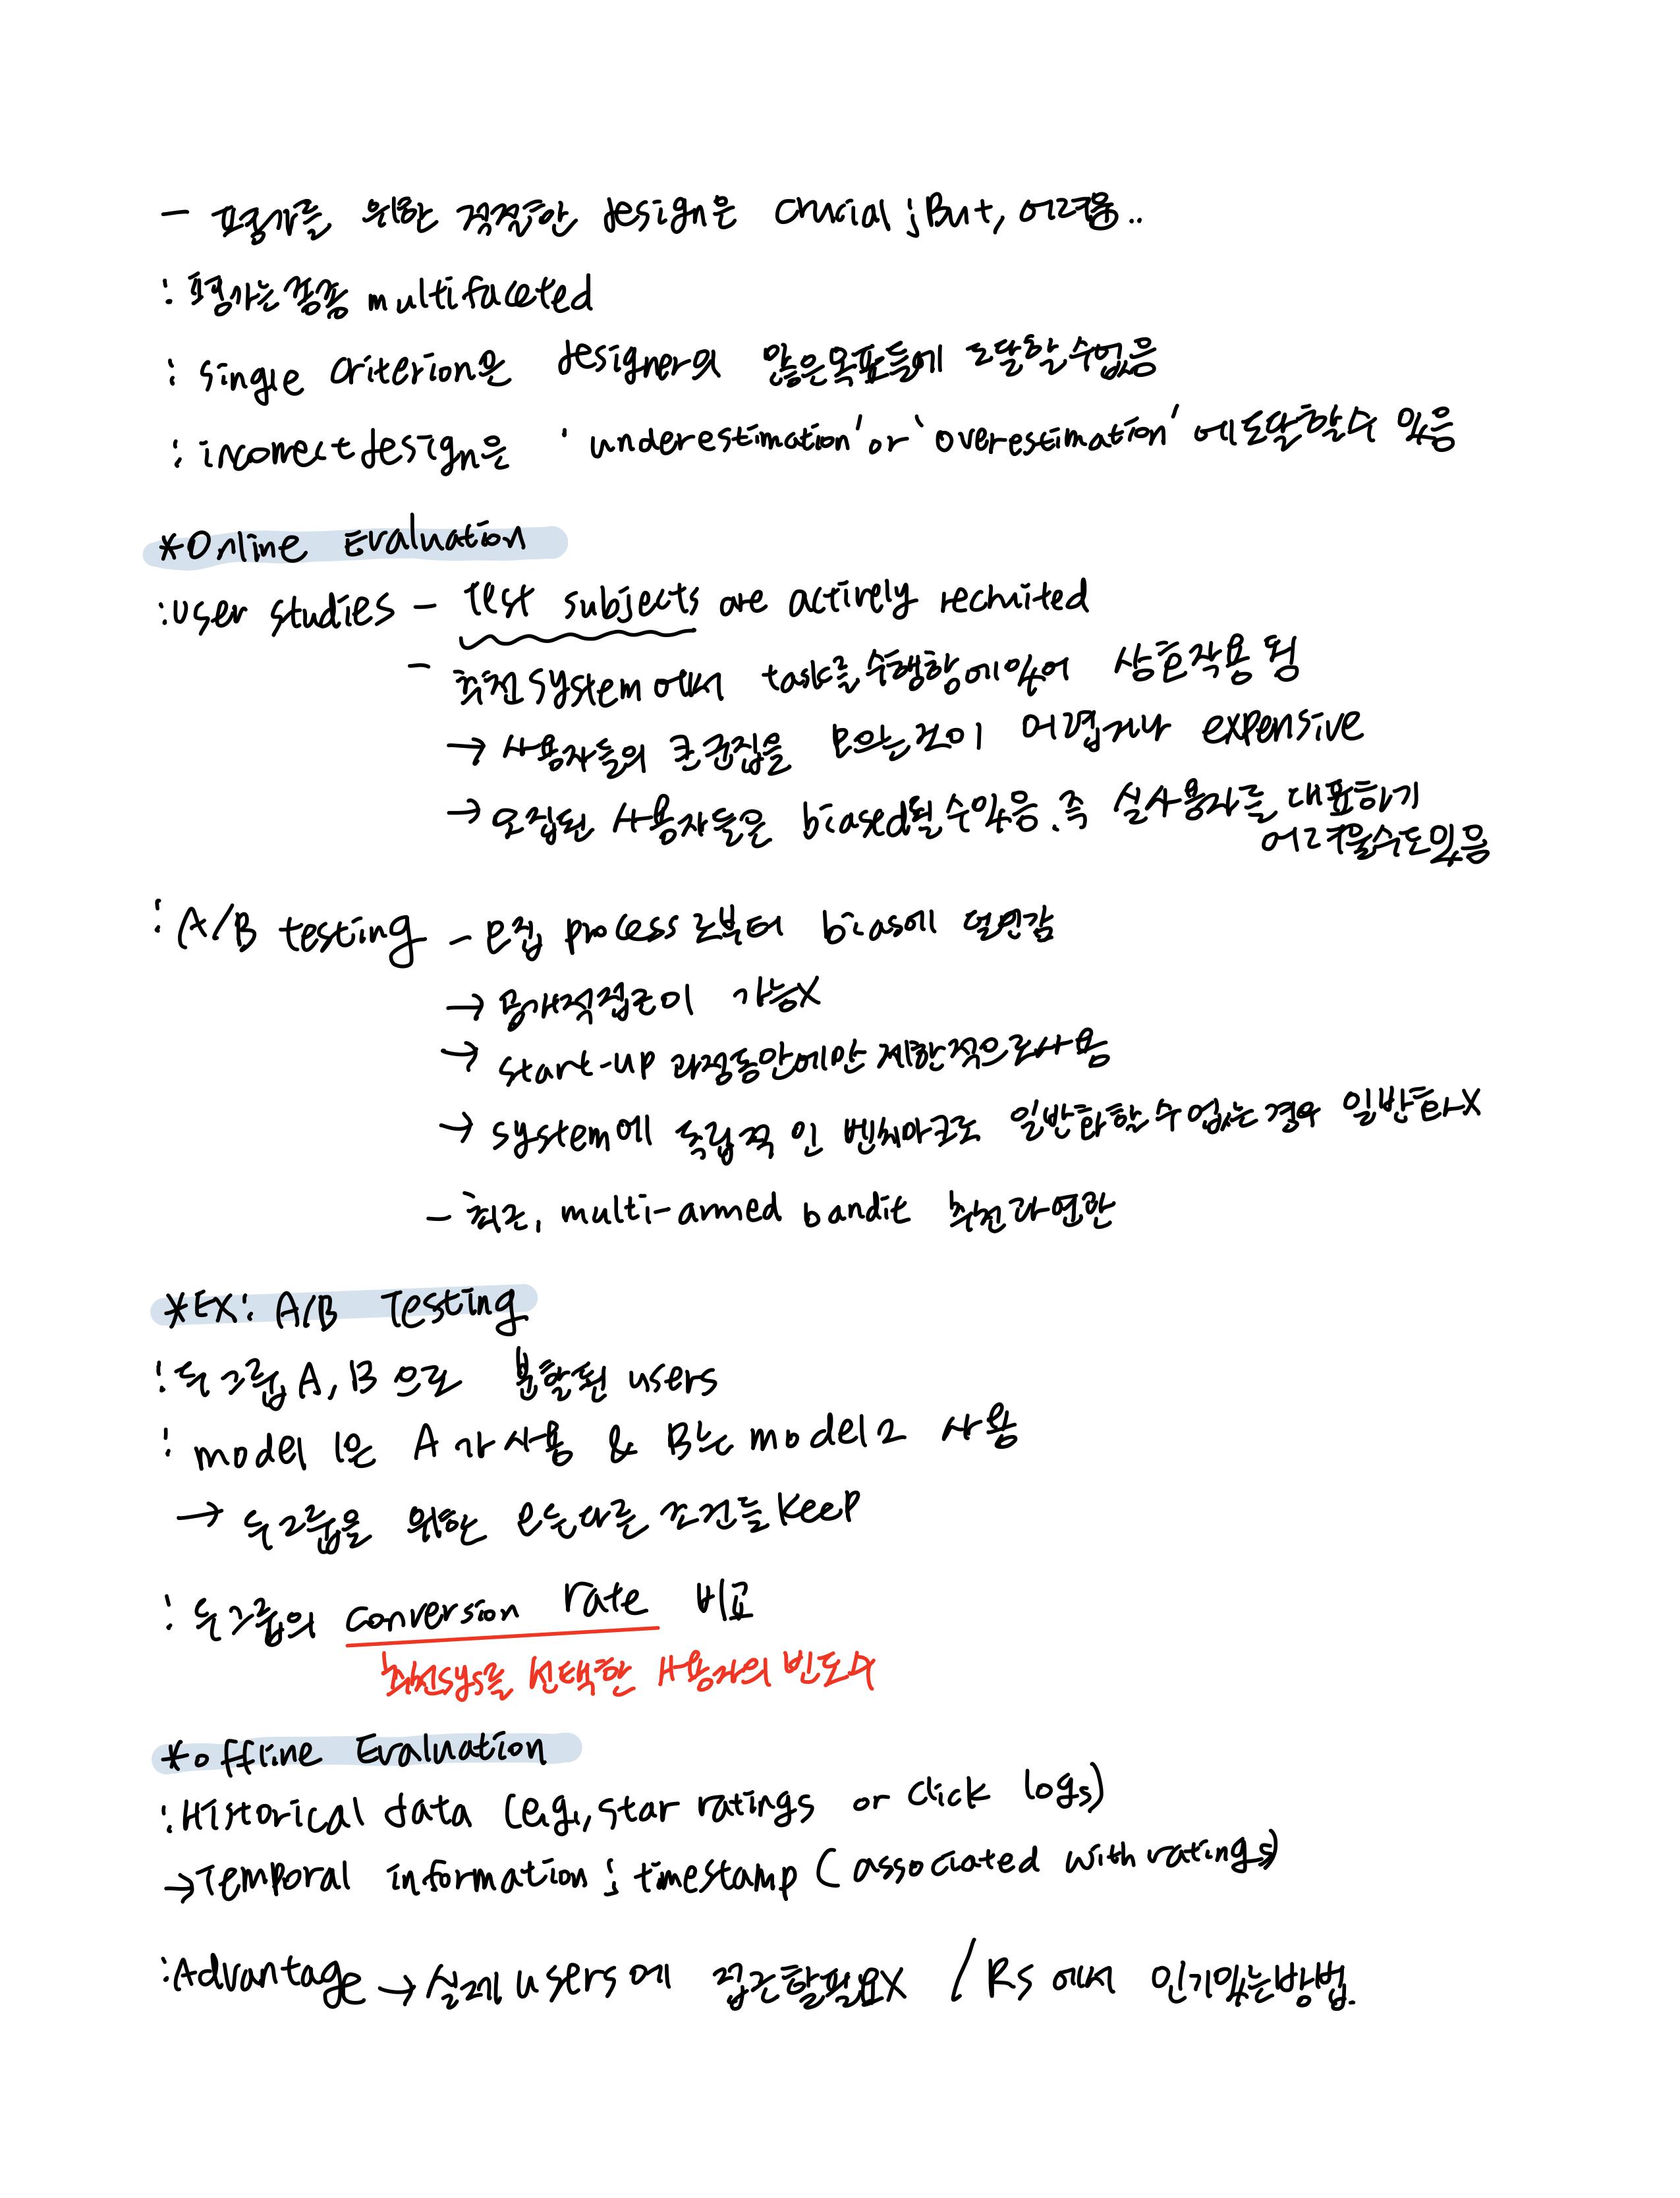 - 평가를 위한 적절한 design은 crucial ; But, 어려움..
: 평가는 종종 multifaceted
: single criterion은 designer의 많은 목표들에 도달할 수 없음
: incorrect design은 'underestimation' or 'overestimation' 에 도달할 수 있음
*Online Evaluation
: user studies - Test subjects are actively recruited
- 추천 system에서 task를 수행함에 있어 상호작용 됨
→ 사용자들의 큰 군집을 모으는 것이 어렵거나 expensive
→ 모집된 사용자들은 biased될 수 있음. 즉 실사용자를 대표하기
어려울 수도 있음
: A/B testing - 모집 process로부터 bias에 덜 민감
→ 공개적 접근이 가능X
→ start-up 과정동안에만 제한적으로 사용
→ system에 독립적인 벤치마크로 일반화할 수 없는 경우 일반화X
- 최근, multi-armed bandit 추천과 연관
*EX: A/B Testing
: 두 그룹 A, B 으로 분할된 users
: model 1은 A가 사용 & B는 model 2 사용
→ 두 그룹을 위한 모든 다른 조건들 keep
: 두 그룹의 conversion rate 비교
추천sys를 선택한 사용자의 빈도수
*offline Evaluation
: Historical data (e.g., star ratings or click logs)
→ Temporal information ; timestamp (associated with ratings)
: Advantage → 실제 users에 접근할 필요X / RS에서 인기있는 방법.